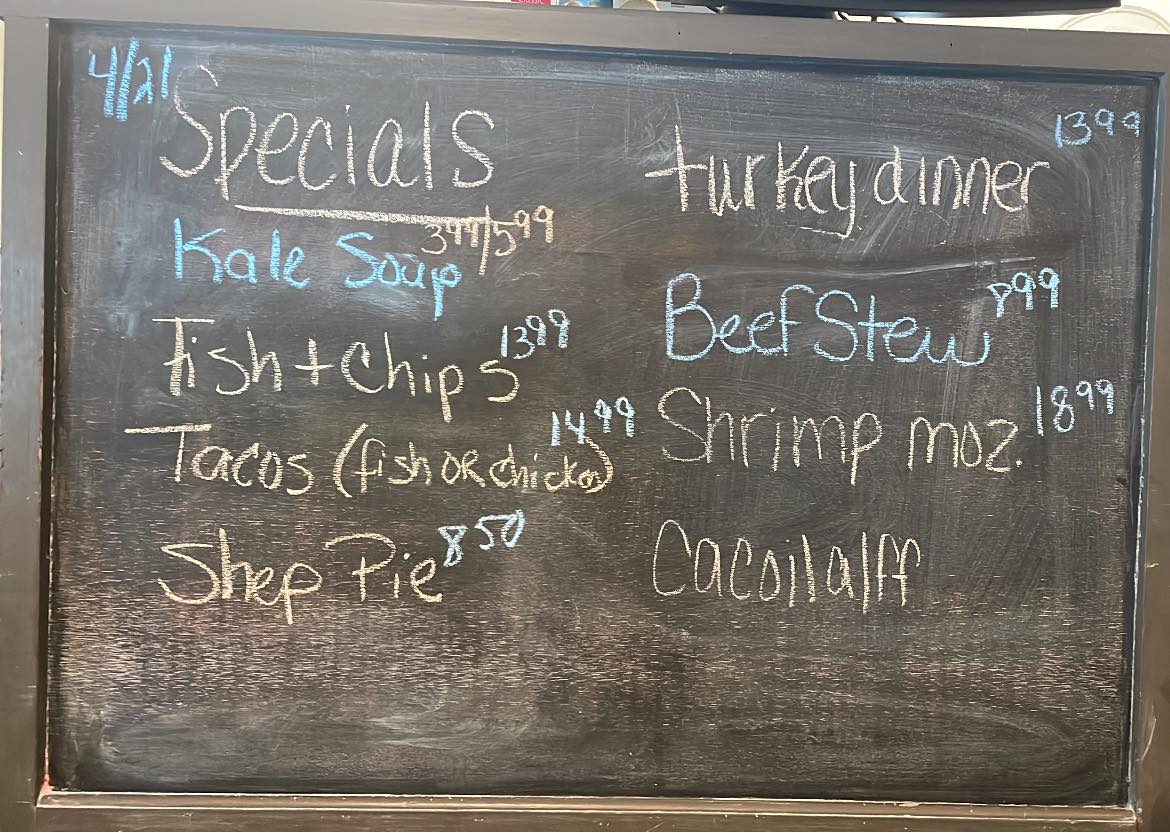 4/21
Specials
Kale Soup 399/599
Fish + Chips 1399
Tacos (fish OR chicken) 1499
Shep Pie 850
turkey dinner 1399
Beef Stew 899
Shrimp moz. 1899
Cacoila/ff